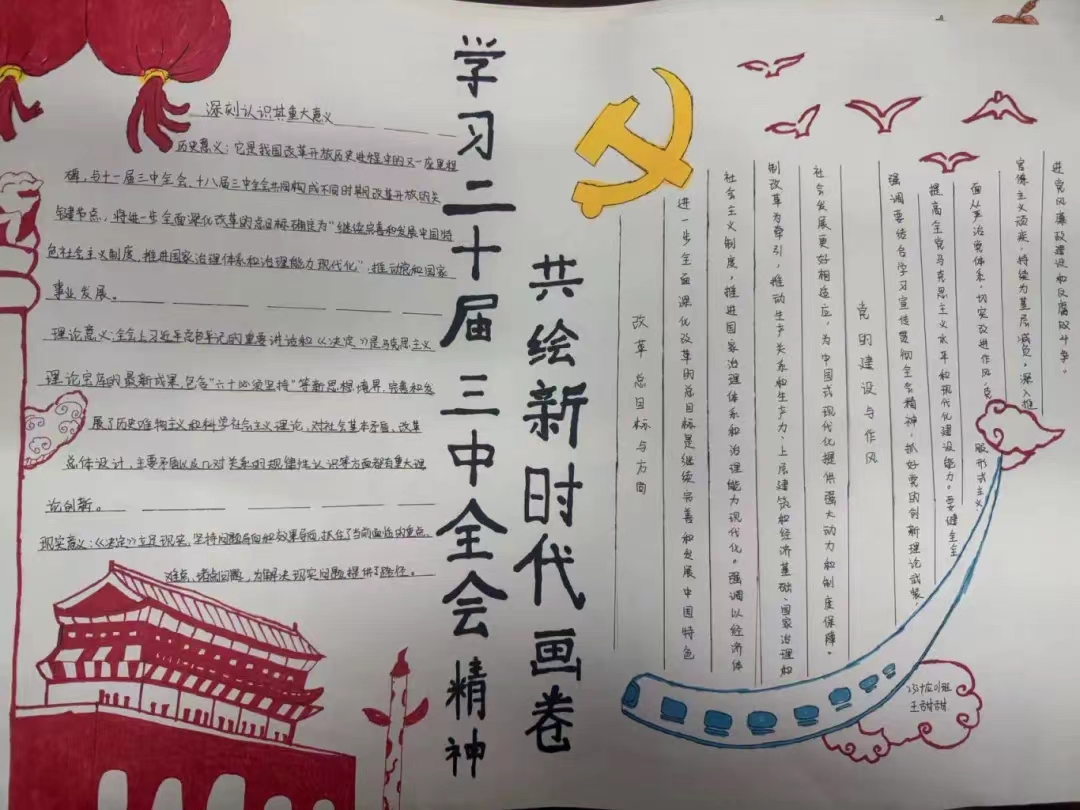 学习二十届三中全会精神
共绘新时代画卷
深刻认识其重大意义
历史意义：它是我国改革开放历史进程中的又一座里程
碑，与十一届三中全会、十八届三中全会共同构成不同时期改革开放的关
键节点，将进一步全面深化改革的总目标确定为“继续完善和发展中国特
色社会主义制度，推进国家治理体系和治理能力现代化”，推动党和国家
事业发展。
理论意义：全会上习近平总书记的重要讲话和《决定》是马克思主义
理论宝库的最新成果，包含“六个必须坚持”等新思想、境界，完善和发
展了历史唯物主义和科学社会主义理论，对社会基本矛盾、改革
总体设计，主要矛盾以及几对关系的规律性认识等方面都有重大理
论创新。
现实意义：《决定》立足现实，坚持问题导向和效果导向，抓住了当前面临的重点、
难点，堵点问题，为解决现实问题提供了路径。
改革总目标与方向
进一步全面深化改革的总目标是继续完善和发展中国特色
社会主义制度，推进国家治理体系和治理能力现代化。强调以经济体
制改革为牵引，推动生产关系和生产力、上层建筑和经济基础、国家治理和
社会发展更好相适应，为中国式现代化提供强大动力和制度保障。
党的建设与作风
强调要结合学习宣传贯彻全会精神，抓好党的创新理论武装，
提高全党马克思主义水平和现代化建设能力。要健全全
面从严治党体系，切实改进作风，克服形式主义、
官僚主义顽疾，持续为基层减负，深入推
进党风廉政建设和反腐败斗争。
王甜甜